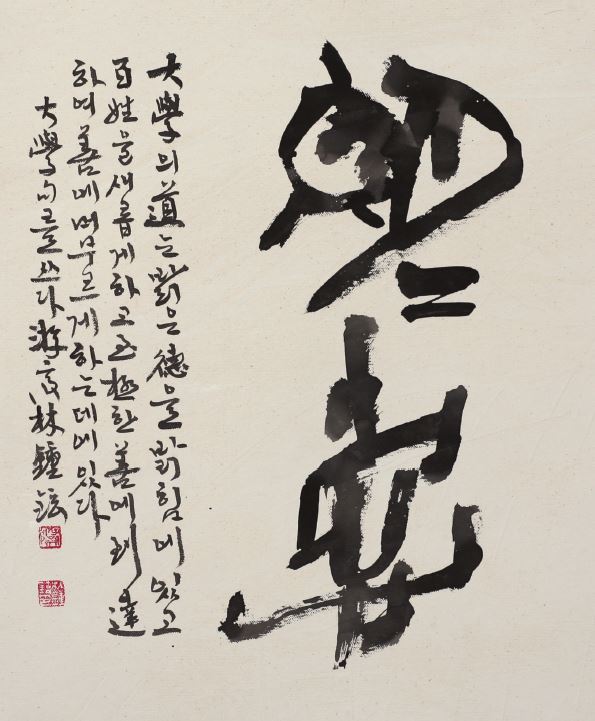 明悳
大學의 道는 밝은 德을 밝힘에 있고
百姓을 새롭게 하고 至極한 善에 到達
하여 善에 머무르게 하는데에 있다
大學句를 쓰다 游玄 林鐘鉉